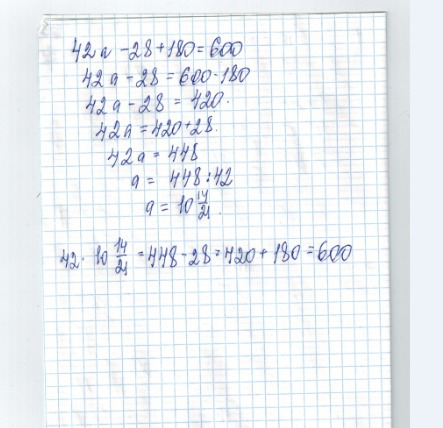 42a - 28 + 180 = 600
42a - 28 = 600 - 180
42a - 28 = 420.
42a = 420 + 28.
42a = 448
a = 448 : 42
a = 10 14/21.
42 · 10 14/21 = 448 - 28 = 420 + 180 = 600